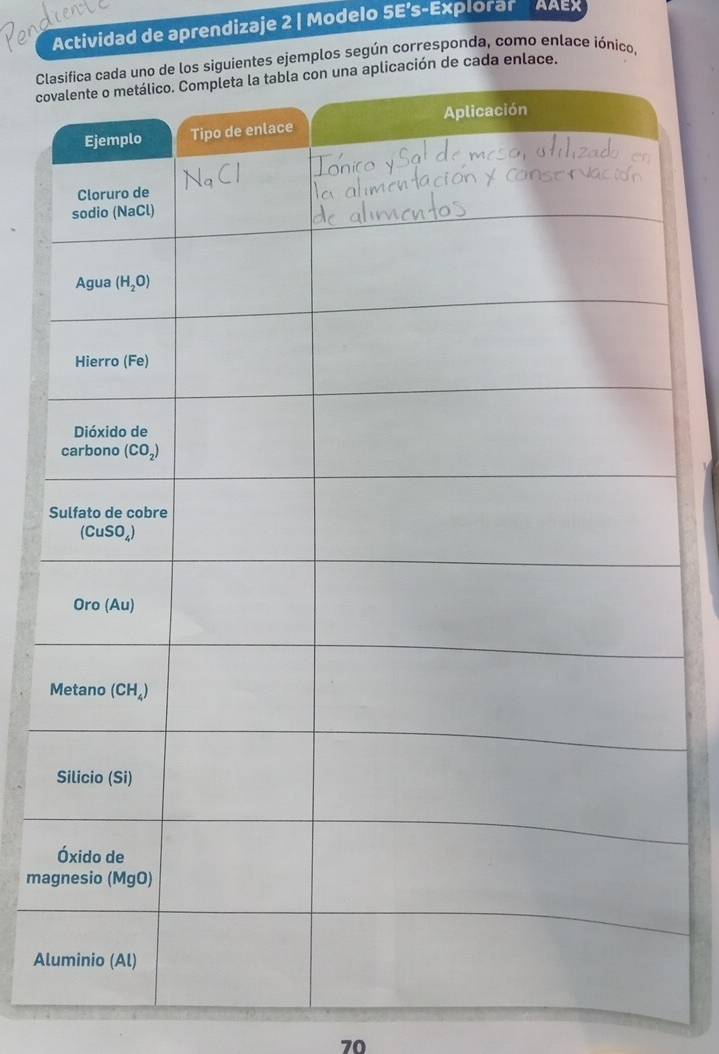 Pendiente
Actividad de aprendizaje 2 | Modelo 5E's-Explorar AAEX
Clasifica cada uno de los siguientes ejemplos según corresponda, como enlace iónico,
covalente o metálico. Completa la tabla con una aplicación de cada enlace.
Ejemplo
Tipo de enlace
Aplicación
Cloruro de
sodio (NaCl)
NaCl
Iónico y Sal de mesa, utilizado en
la alimentacion y conservación
de alimentos
Agua (H₂O)
Hierro (Fe)
Dióxido de
carbono (CO₂)
Sulfato de cobre
(CuSO₄)
Oro (Au)
Metano (CH₄)
Silicio (Si)
Óxido de
magnesio (MgO)
Aluminio (Al)
70